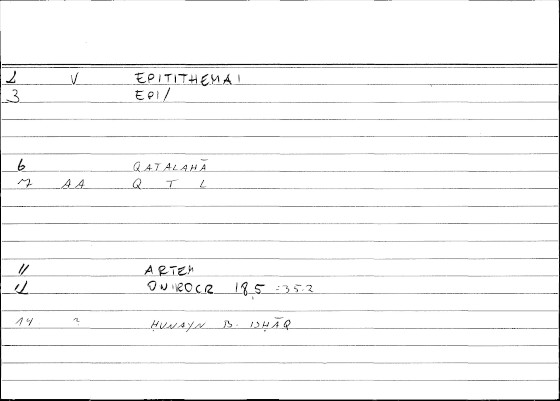 1 V EPITITHEMAI
3 EPI/
6 QATALAHĀ
7 AA Q T L
11 ARTEM
12 ONIROCR 18,5 :35.2
14 ? ḤUNAYN B. ISḤĀQ